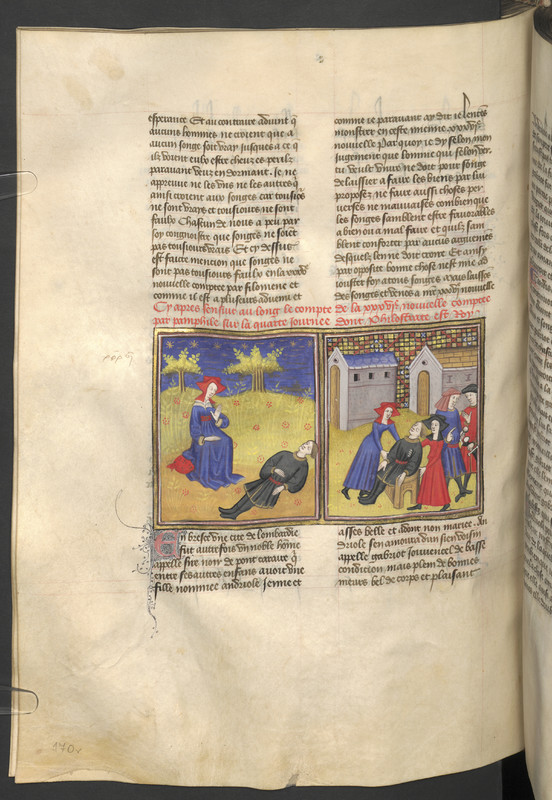 esperance Et au contraire advient q̄
aucuns hommes ne croient que a
aucun songe soit vray jusques a ce q̄
ilz voient eulx estre cheuz es perilz
paravant veuz en dormant. Je ne
appreuve ne les uns ne les autres q̄
ainsi croient aux songes car toutes
ne sont vrays et tousiours ne sont
faulx Chascun de nous a peu par
soy congnoistre que songes ne soiēt
pas tousiours vrais Et cy dessus
est faicte mencion que songes ne
sont pas tousiours faulx en la
nouvelle comptee par filomene et
comme il est a plusieurs advenu et
comme ie paravant ay dit ie lentens
monstrer en ceste mienne
nouvelle Par quoy ie dy selon mon
jugement que homme qui selon ver
tu veult vivre ne doit pour songe
delaissier a faire les biens par lui
proposez ne faire aussi choses per
verses ne mauvaises combien que
les songes samblent estre favorables
a bien ou a mal faire et quilz sam
blent conforter par aucuns argumens
desquelz len ne doit croire Et ainsi
par opposit bonne chose nest mie ad
iouster foy a tous songes Mais laissez
des songes et venons a me nouvelle
Cy apres sensuit au long le compte de la nouvelle comptee
par pamphile sur la quarte journee dont Philostrate est Roy
En bresce une cite de lombardie
fut autrefois un noble home
appelle sire noir de pont carare q̄
entre ses autres enfans avoit une
fille nommee andriole jeune et
asses belle et adont non mariee. An
driole sen amoura dun sien voisin
appelle gabriot jouvencel de basse
condicion, mais plein de bonnes
meurs bel de corps et plaisant
170v